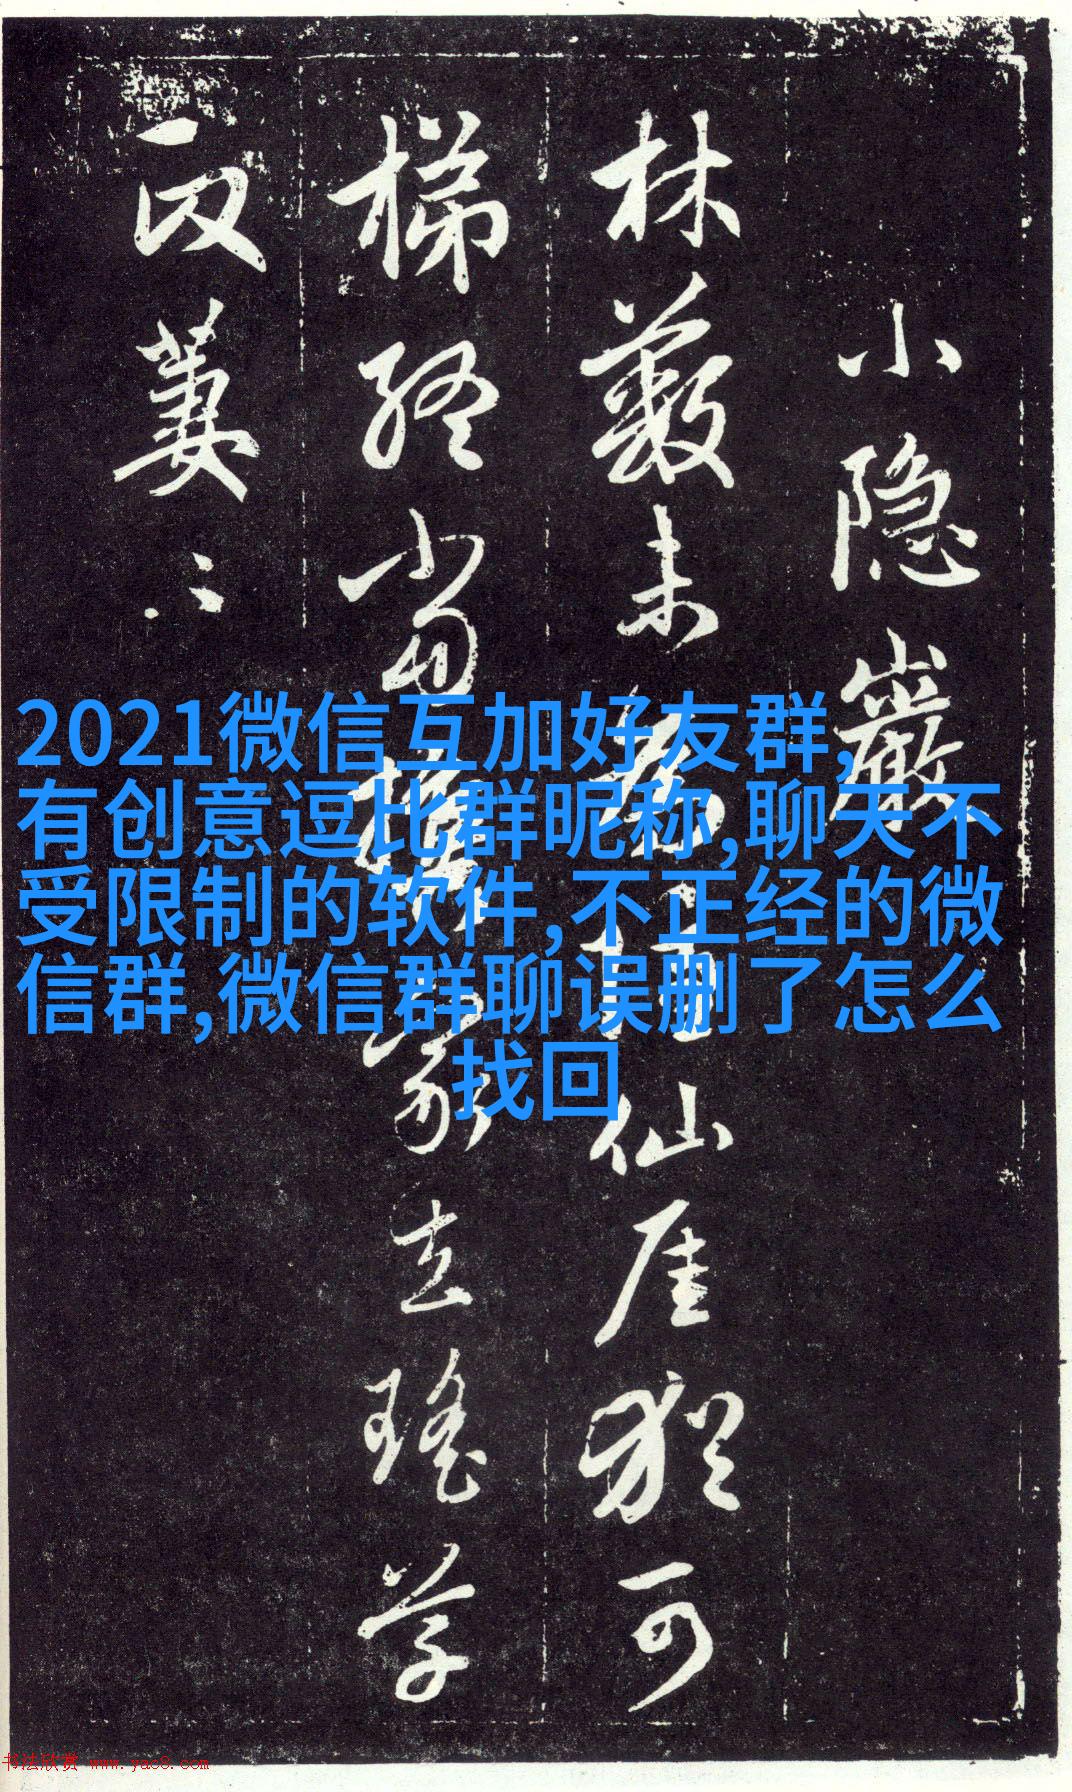 小隐巖
林薮未仙厓犹可
梯终当家去瑶草
萋〻
2021微信互加好友群,
有创意逗比群昵称,聊天不
受限制的软件,不正经的微
信群,微信群聊误删了怎么
找回
书法欣赏 www.yac8.com